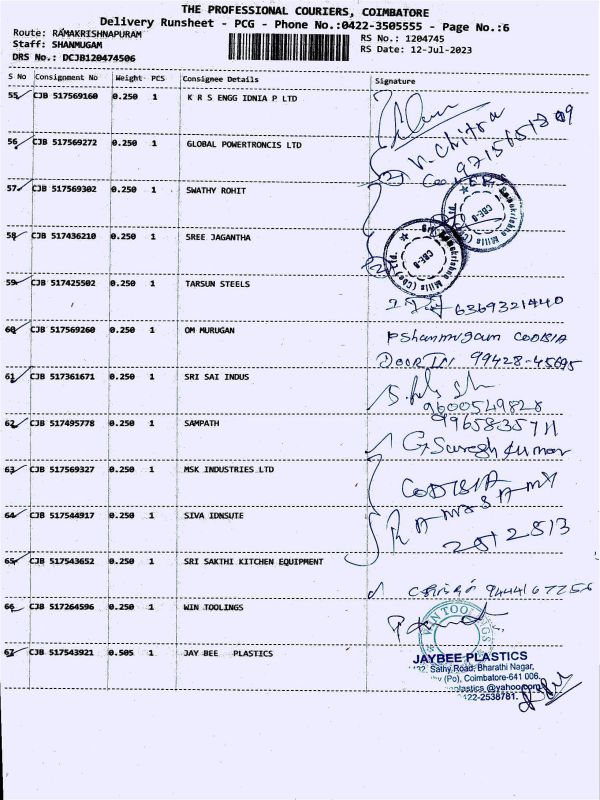 THE PROFESSIONAL COURIERS, COIMBATORE
Delivery Runsheet - PCG - Phone No.:0422-3505555 - Page No.:6
Route: RAMAKRISHNAPURAM
RS No.: 1204745
Staff: SHANMUGAM
RS Date: 12-Jul-2023
DRS No.: DCJB120474506
S No Consignment No Weight PCS Consignee Details Signature
55 CJB 517569160 0.250 1 K R S ENGG IDNIA P LTD
56 CJB 517569272 0.250 1 GLOBAL POWERTRONCIS LTD
N. Chitra
57 CJB 517569302 0.250 1 SWATHY ROHIT
58 CJB 517436210 0.250 1 SREE JAGANTHA
CBE-8
CBE-8
59 CJB 517425502 0.250 1 TARSUN STEELS
6369321440
60 CJB 517569260 0.250 1 OM MURUGAN
PShanmugam CODISIA
99428-45695
61 CJB 517361671 0.250 1 SRI SAI INDUS
9600549828
62 CJB 517495778 0.250 1 SAMPATH
G. Suresh Kumar
63 CJB 517569327 0.250 1 MSK INDUSTRIES LTD
CODISIA
64 CJB 517544917 0.250 1 SIVA IDNSUTE
RAMASAMY
2612813
65 CJB 517543652 0.250 1 SRI SAKTHI KITCHEN EQUIPMENT
9444167256
66 CJB 517264596 0.250 1 WIN TOOLINGS
WIN TOOLINGS
67 CJB 517543921 0.505 1 JAY BEE PLASTICS
JAYBEE PLASTICS
Sathy Road, Bharathi Nagar,
(Po), Coimbatore-641 006.
plastics @yahoo
122-2538781.